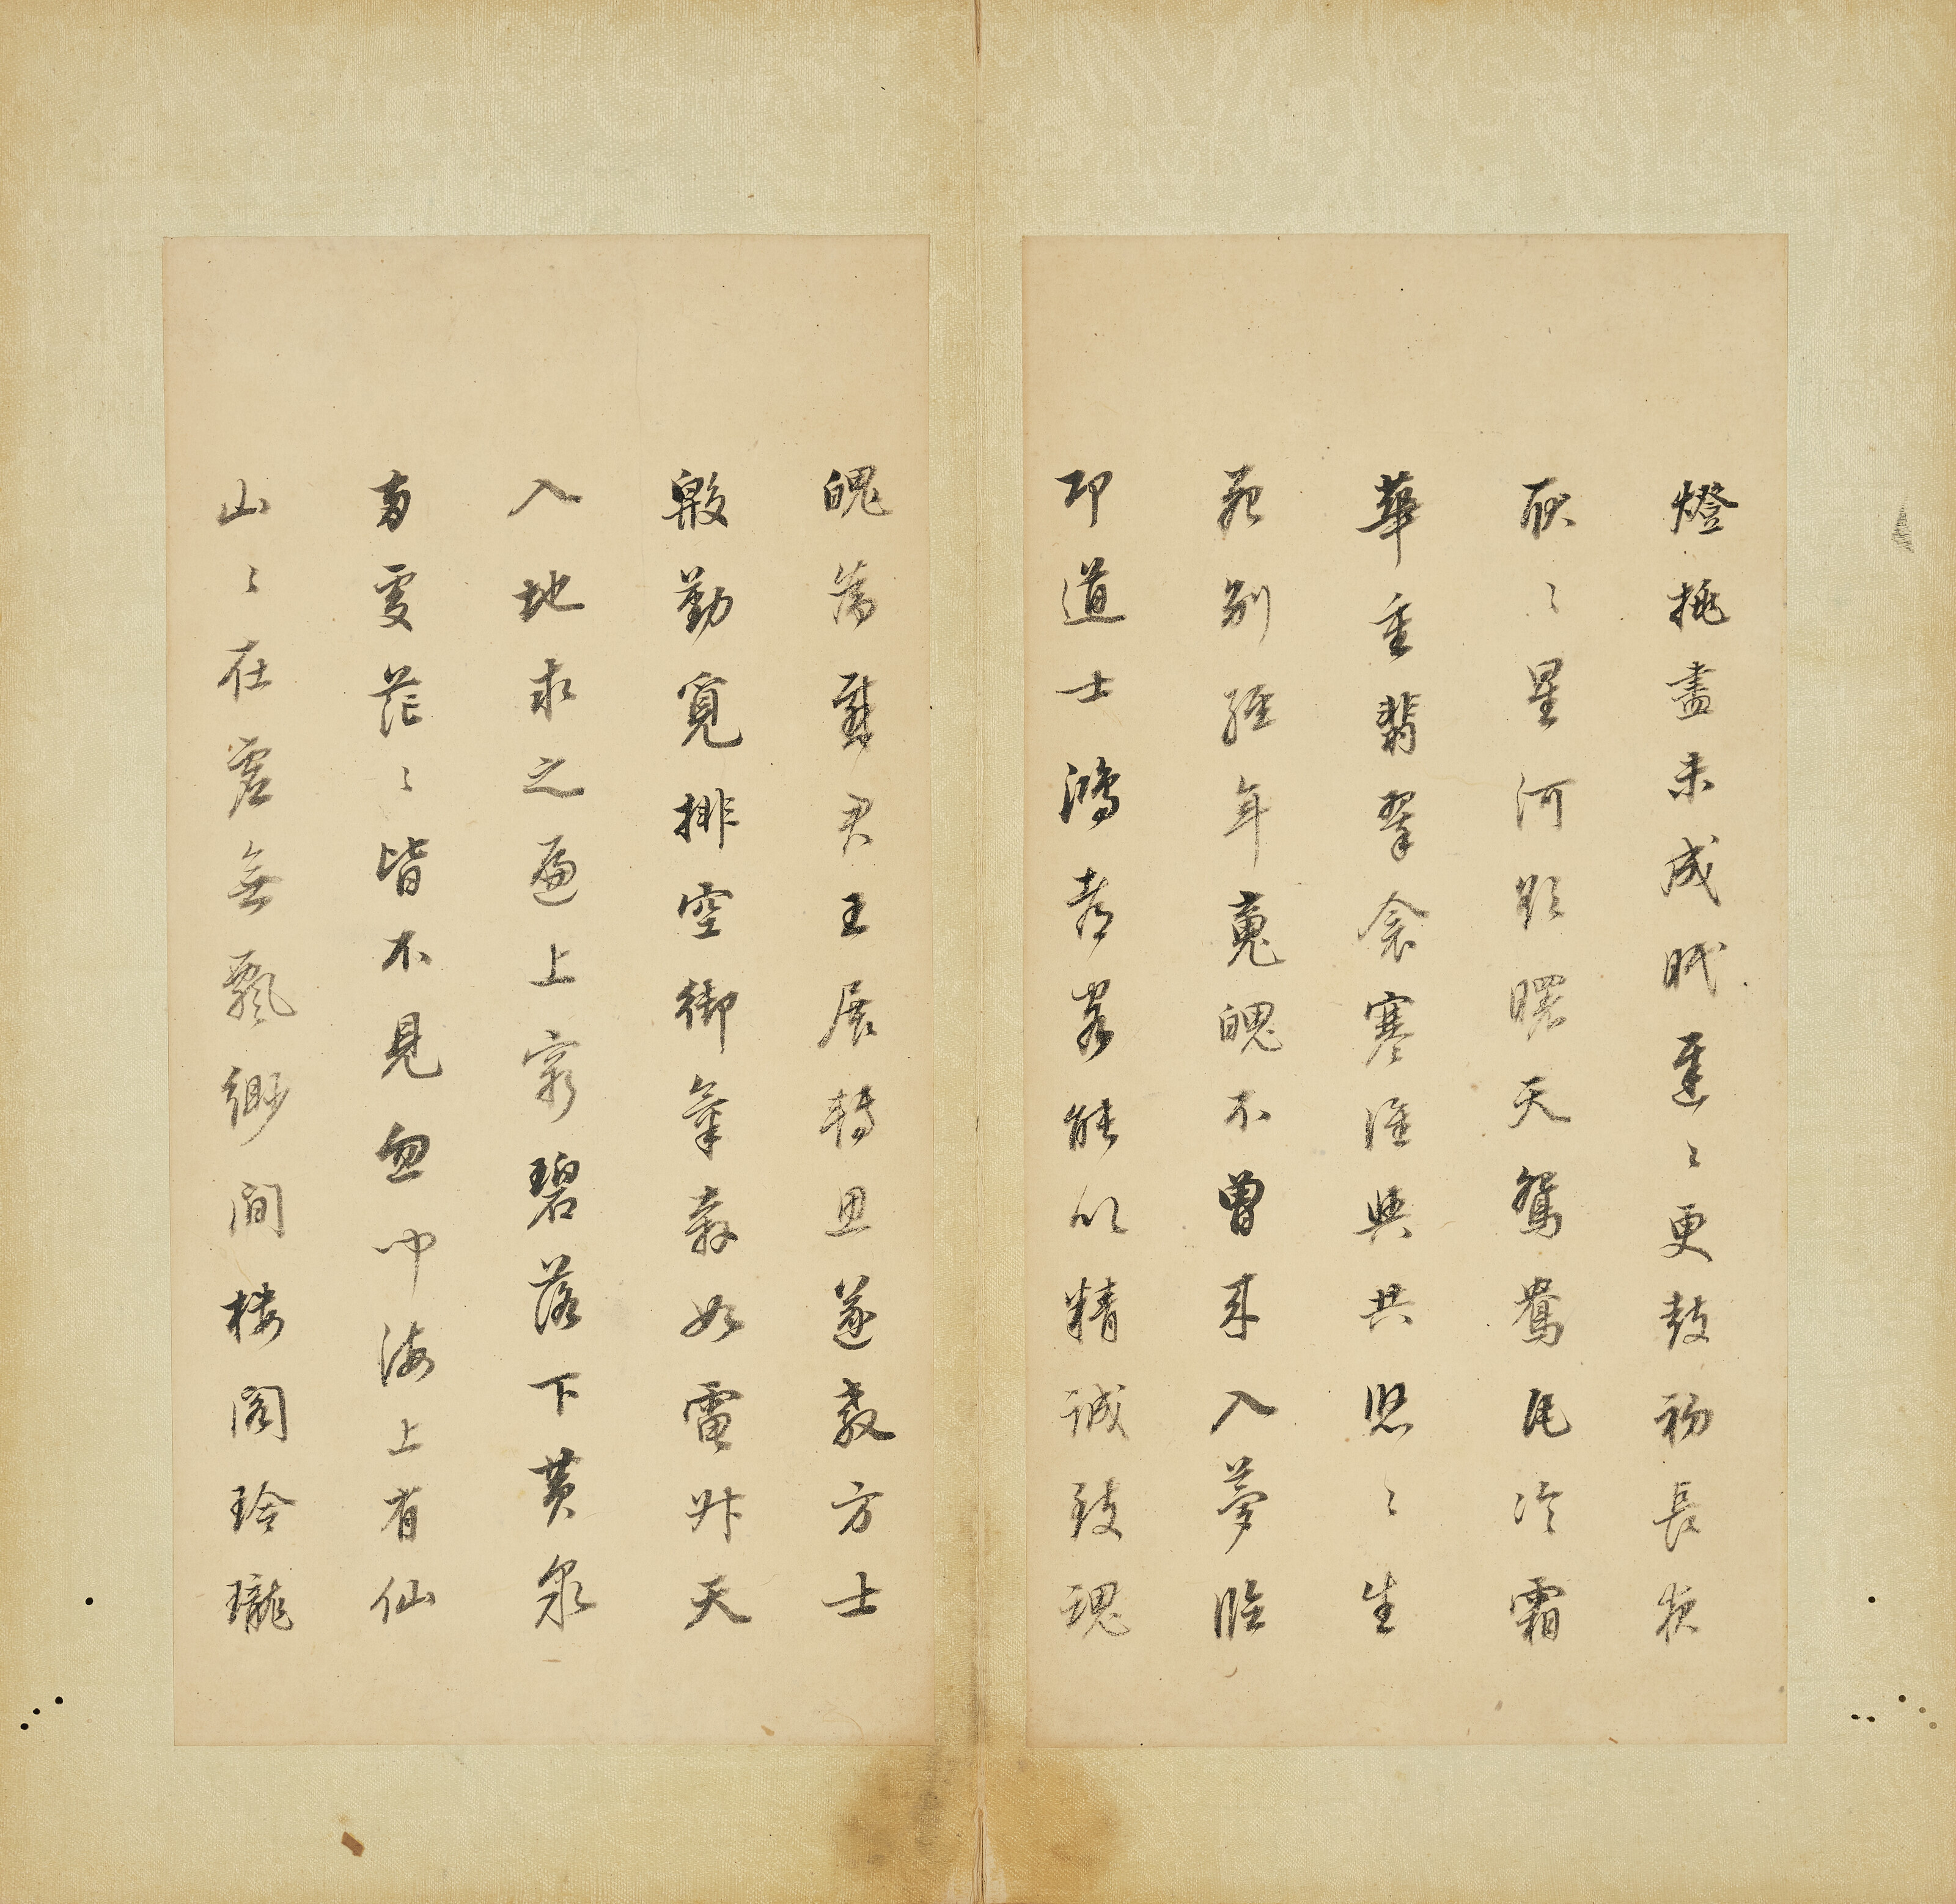 燈挑盡未成眠遲〻更鼓初長夜
耿〻星河欲曙天鴛鴦瓦冷霜
華重翡翠衾寒誰與共悠〻生
死別經年魂魄不曾來入夢臨
邛道士鴻都客能以精誠致魂
魄為感君王展轉思遂教方士
殷勤覓排空御氣奔如電升天
入地求之遍上窮碧落下黃泉
兩處茫〻皆不見忽聞海上有仙
山〻在虛無飄緲間楼閣玲瓏